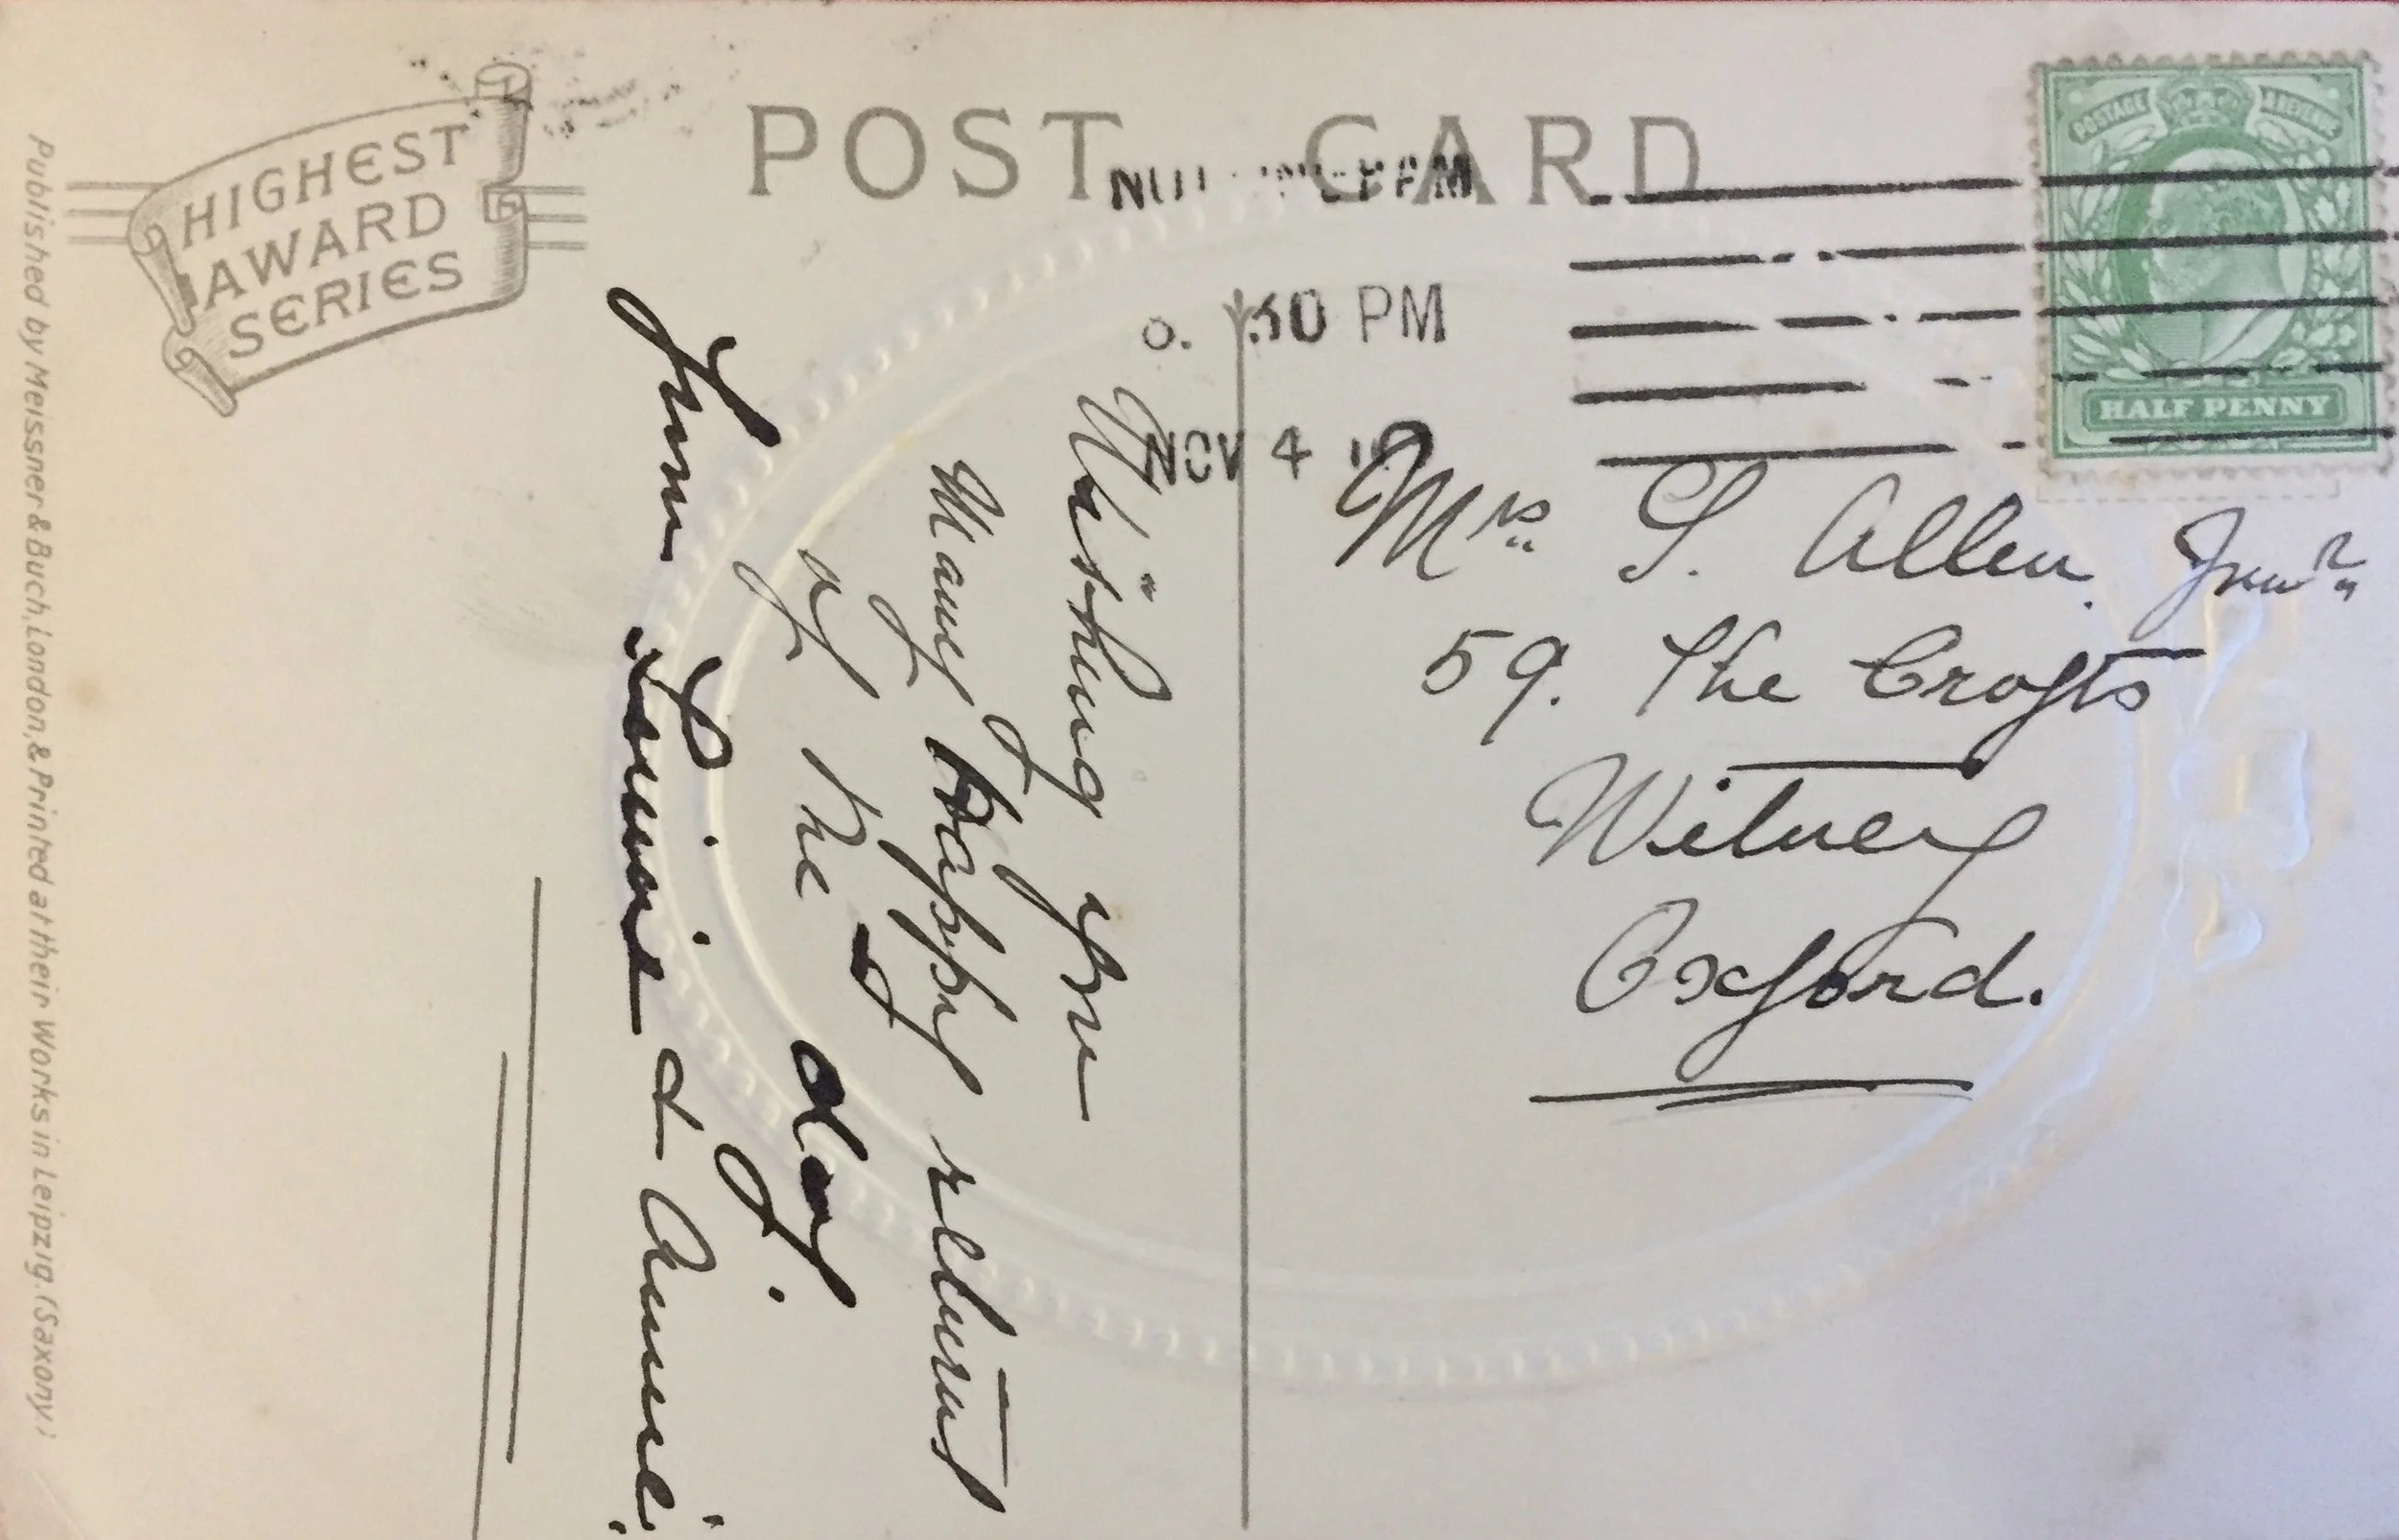 HIGHEST
AWARD
SERIES
POST CARD
POSTAGE & REVENUE
HALF PENNY
30 PM
NOV 4
Published by Meissner & Buch, London, & Printed at their Works in Leipzig. (Saxony)
Wishing you
Many Happy returns
of the day.
from & Annie.
Mrs S. Allen. Junr
59. The Crofts
Witney
Oxford.